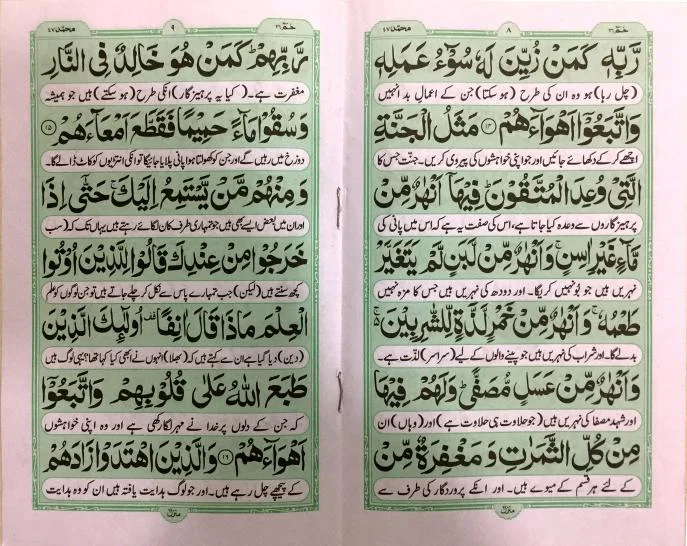 حٰمٓ ٢٦
٨
محمّد ٤٧
رَّبِّهٖ كَمَنْ زُيِّنَ لَهٗ سُوْٓءُ عَمَلِهٖ
(چل رہا) ہو وہ ان کی طرح (ہو سکتا) جن کے اعمالِ بد انہیں
وَاتَّبَعُوْٓا اَهْوَآءَهُمْ ﴿١٤﴾ مَثَلُ الْجَنَّةِ
اچھے کر کے دکھائے جائیں اور جو اپنی خواہشوں کی پیروی کریں۔ جنّت جس کا
الَّتِيْ وُعِدَ الْمُتَّقُوْنَ ؕ فِيْهَآ اَنْهٰرٌ مِّنْ
پرہیزگاروں سے وعدہ کیا جاتا ہے، اس کی صفت یہ ہے کہ اس میں پانی کی
مَّآءٍ غَيْرِ اٰسِنٍ ۚ وَاَنْهٰرٌ مِّنْ لَّبَنٍ لَّمْ يَتَغَيَّرْ
نہریں ہیں جو بو نہیں کریگا۔ اور دودھ کی نہریں ہیں جس کا مزہ نہیں
طَعْمُهٗ ۚ وَاَنْهٰرٌ مِّنْ خَمْرٍ لَّذَّةٍ لِّلشّٰرِبِيْنَ ۚ
بدلے گا۔ اور شراب کی نہریں ہیں جو پینے والوں کے لیے (سراسر) لذّت ہے۔
وَاَنْهٰرٌ مِّنْ عَسَلٍ مُّصَفًّى ؕ وَلَهُمْ فِيْهَا
اور شہد مصفا کی نہریں ہیں (جو حلاوت ہی حلاوت ہے) اور (وہاں) ان
مِنْ كُلِّ الثَّمَرٰتِ وَمَغْفِرَةٌ مِّنْ
کے لئے ہر قسم کے میوے ہیں۔ اور انکے پروردگار کی طرف سے
حٰمٓ ٢٦
٩
محمّد ٤٧
رَّبِّهِمْ ؕ كَمَنْ هُوَ خَالِدٌ فِي النَّارِ
مغفرت ہے۔ (کیا یہ پرہیزگار) انکی طرح (ہو سکتے) ہیں جو ہمیشہ
وَسُقُوْا مَآءً حَمِيْمًا فَقَطَّعَ اَمْعَآءَهُمْ ﴿١٥﴾
دوزخ میں رہیں گے اور جن کو کھولتا ہوا پانی پلایا جائیگا تو انکی انتڑیوں کو کاٹ ڈالے گا۔
وَمِنْهُمْ مَّنْ يَّسْتَمِعُ اِلَيْكَ ۚ حَتّٰىٓ اِذَا
اور ان میں بعض ایسے بھی ہیں جو تمہاری طرف کان لگائے رہتے ہیں یہاں تک کہ (سب
خَرَجُوْا مِنْ عِنْدِكَ قَالُوْا لِلَّذِيْنَ اُوْتُوا
کچھ سنتے ہیں (لیکن) جب تمہارے پاس سے نکل کر چلے جاتے ہیں تو جن لوگوں کو علمِ
الْعِلْمَ مَاذَا قَالَ اٰنِفًا ۟ اُولٰٓئِكَ الَّذِيْنَ
(دین) دیا گیا ہے ان سے کہتے ہیں کہ (بھلا) انہوں نے ابھی کیا کہا تھا؟ یہی لوگ ہیں
طَبَعَ اللّٰهُ عَلٰى قُلُوْبِهِمْ وَاتَّبَعُوْٓا
کہ جن کے دلوں پر خدا نے مہر لگا رکھی ہے اور وہ اپنی خواہشوں
اَهْوَآءَهُمْ ﴿١٦﴾ وَالَّذِيْنَ اهْتَدَوْا زَادَهُمْ
کے پیچھے چل رہے ہیں۔ اور جو لوگ ہدایت یافتہ ہیں ان کو وہ ہدایت